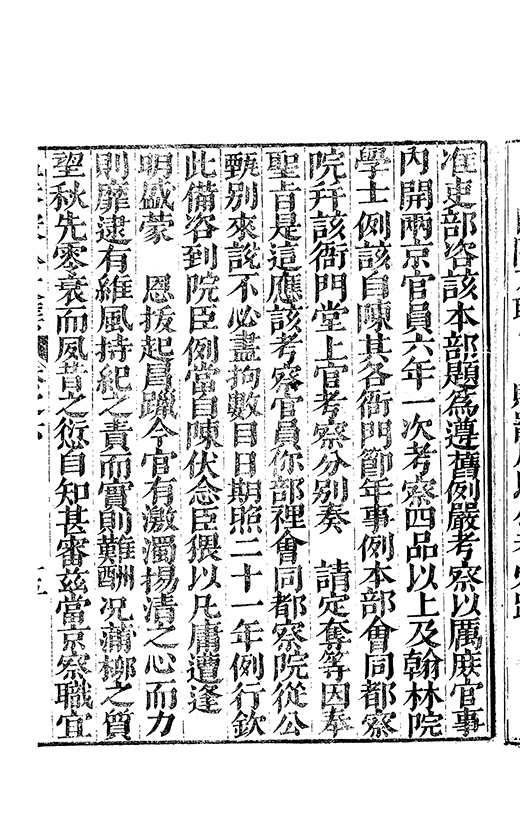 准吏部咨該本部題為遵舊例嚴考察以厲庶官事
內開兩京官員六年一次考察四品以上及翰林院
學士例該自陳其各衙門節年事例本部會同都察
院幷該衙門堂上官考察分別奏　請定奪等因奉
聖旨是這應該考察官員你部裡會同都察院從公
甄別來說不必盡拘數目日期照二十一年例行欽
此備咨到院臣例當自陳伏念臣猥以凡庸遭逢
明盛蒙　恩拔起員躐今官有激濁揚清之心而力
則靡逮有維風持紀之責而實則難酬况蒲柳之質
望秋先零衰而夙昔之愆自知甚審茲當京察職宜